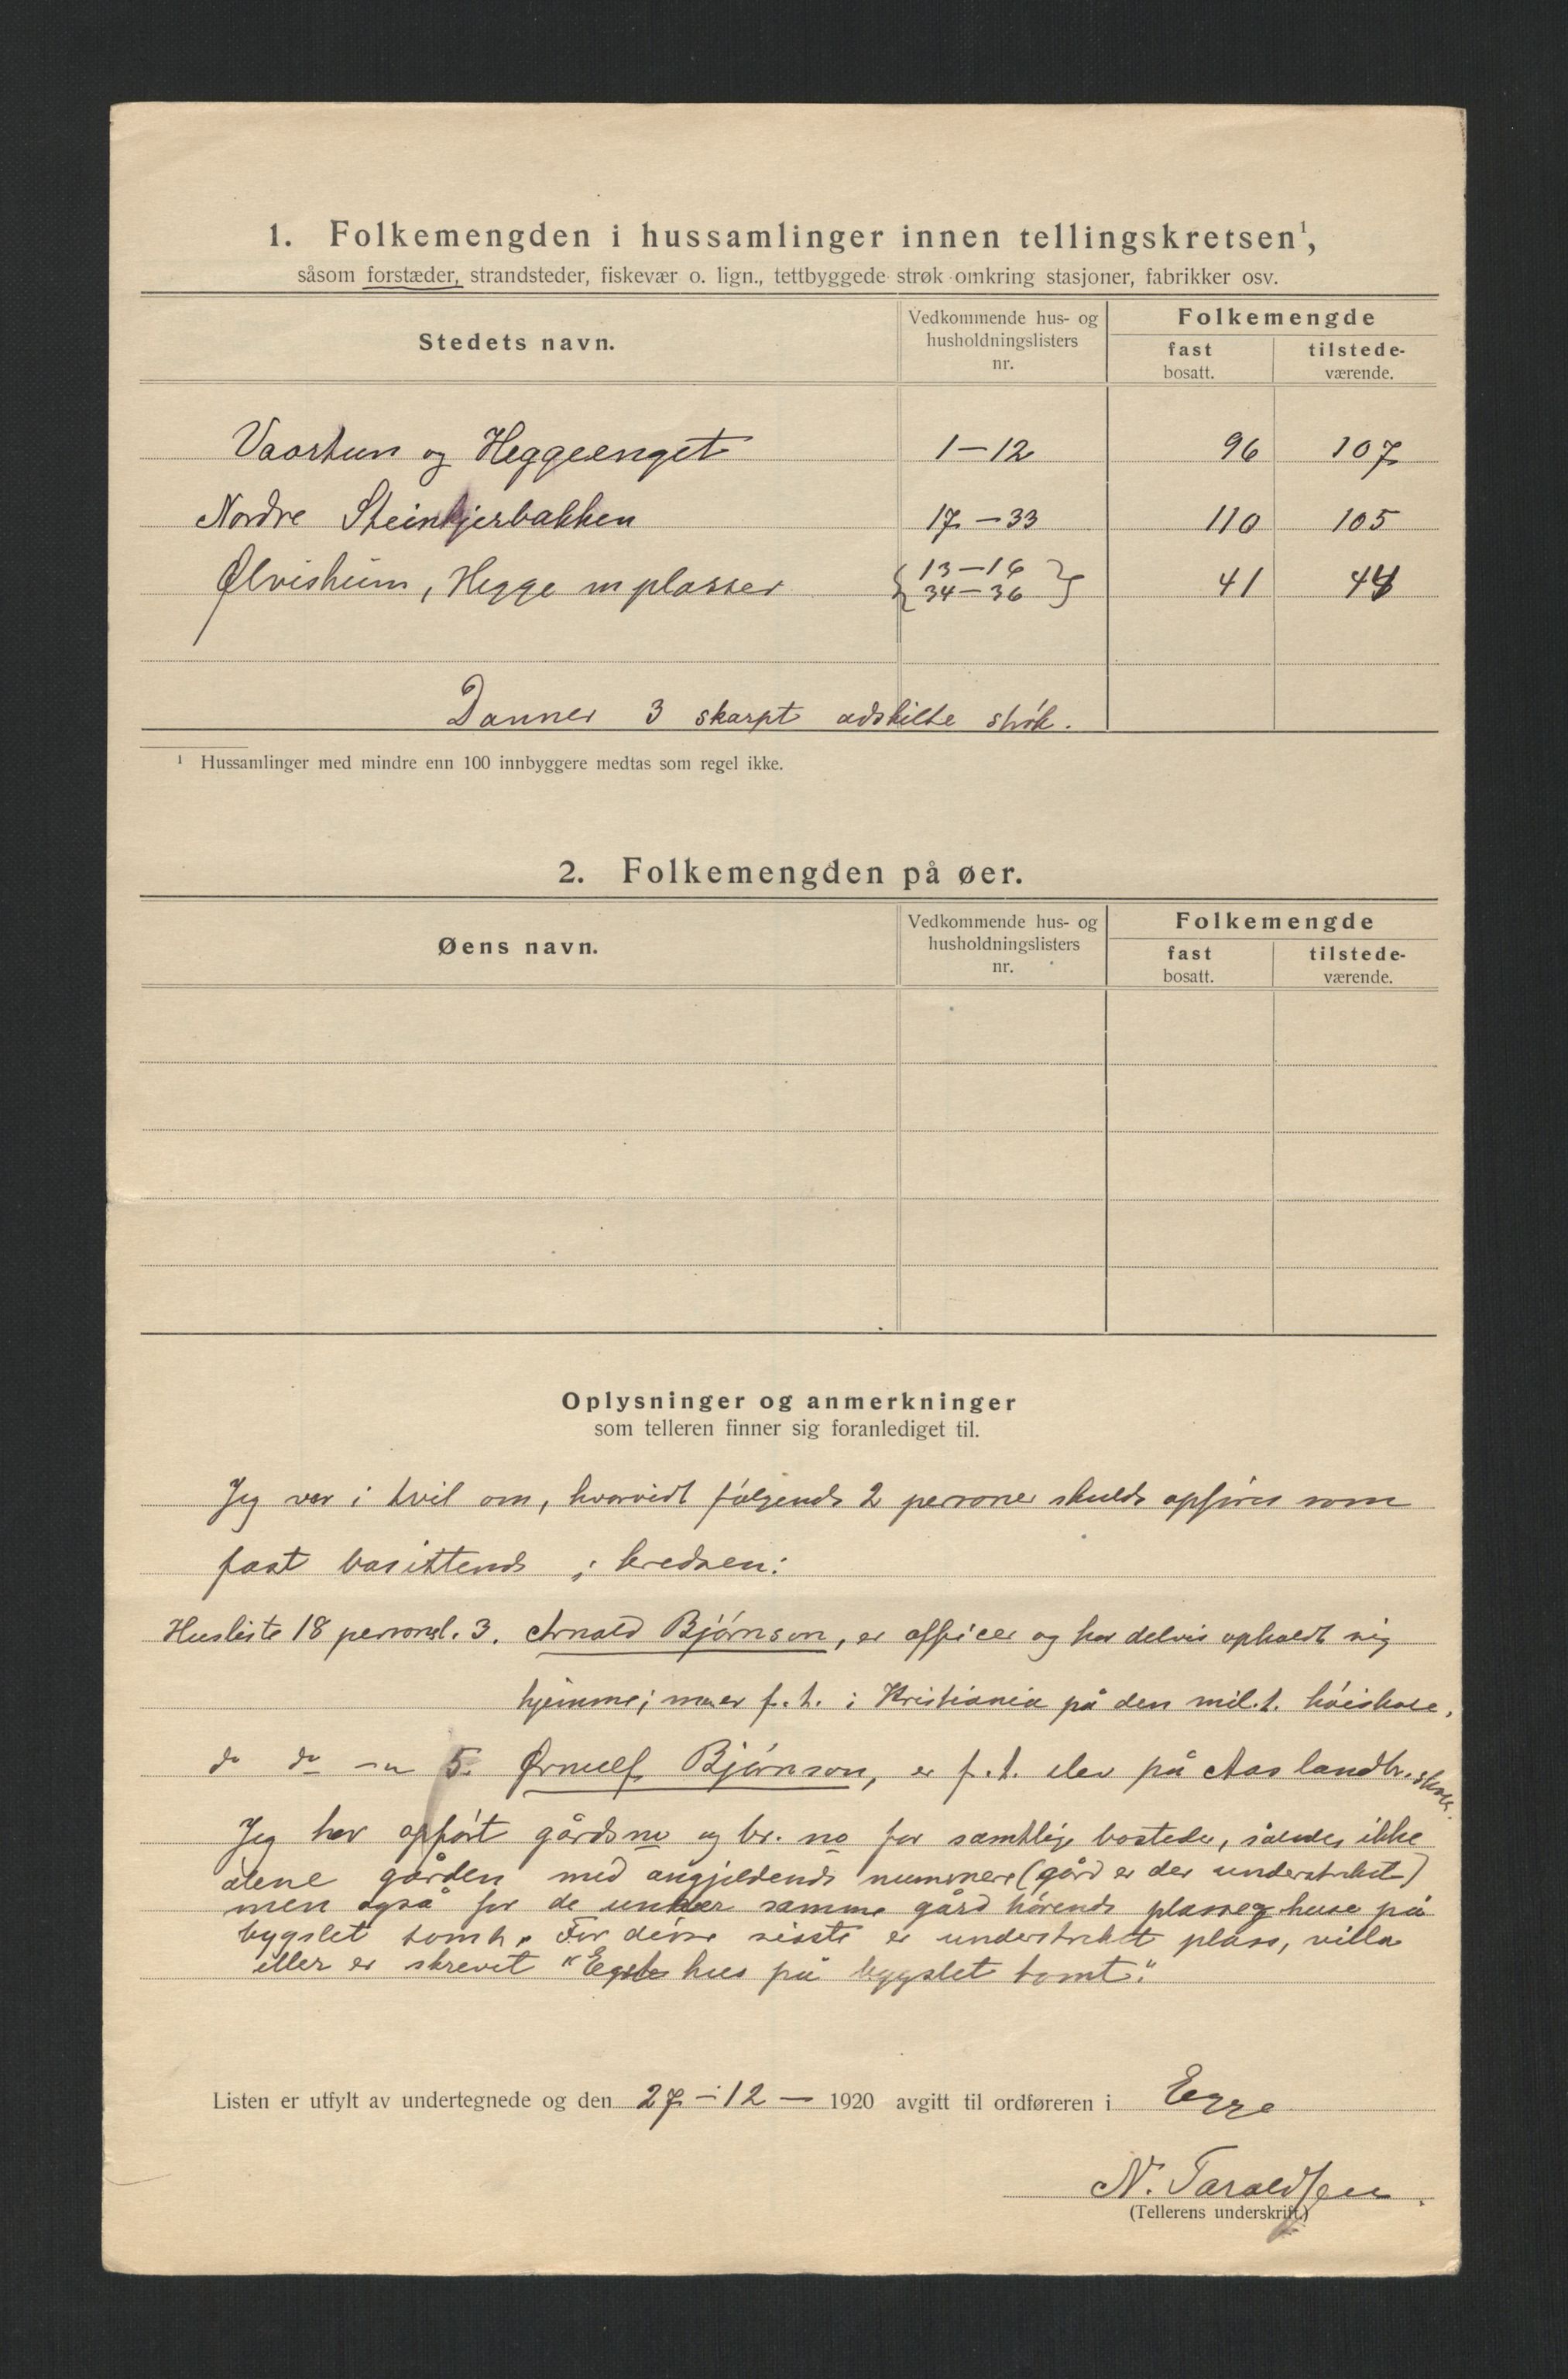 1. Folkemengden i hussamlinger innen tellingskretsen¹,
såsom forstæder, strandsteder, fiskevær o. lign., tettbyggede strøk omkring stasjoner, fabrikker osv.
Stedets navn. Vedkommende hus- og husholdningslisters nr. Folkemengde fast bosatt. tilstede-værende.
Vaartun og Heggeenget 1–12 96 107
Nordre Steinkjerbakken 17–33 110 105
Ølvisheim, Hegge m plasser {13–16 34–36} 41
Danner 3 skarpt adskilte strøk.
¹ Hussamlinger med mindre enn 100 innbyggere medtas som regel ikke.
2. Folkemengden på øer.
Øens navn. Vedkommende hus- og husholdningslisters nr. Folkemengde fast bosatt. tilstede-værende.
Oplysninger og anmerkninger
som telleren finner sig foranlediget til.
Jeg var i tvil om, hvorvidt følgende 2 personer skulde opføres som
fast bosittende i kredsen:
Husliste 18 personl. 3. Arnold Bjørnson, er officer og har delvis opholdt sig
hjemme; men er f.t. i Kristiania på den mil.t. høiskole.
do do — 5. Ørnulf Bjørnson, er f.t. elev på Aas landbr.skole.
Jeg har opført gårdsno og br. no for samtlige bosteder, således ikke
alene gården med angjeldende nummer (gård er der understreket)
men også for de under samme gård hørende plasser og huse på
bygslet tomt. For disse sisste er understreket plass, villa
eller er skrevet "Eget hus på bygslet tomt."
Listen er utfylt av undertegnede og den 27–12– 1920 avgitt til ordføreren i Egge
N. Taraldsen.
(Tellerens underskrift.)